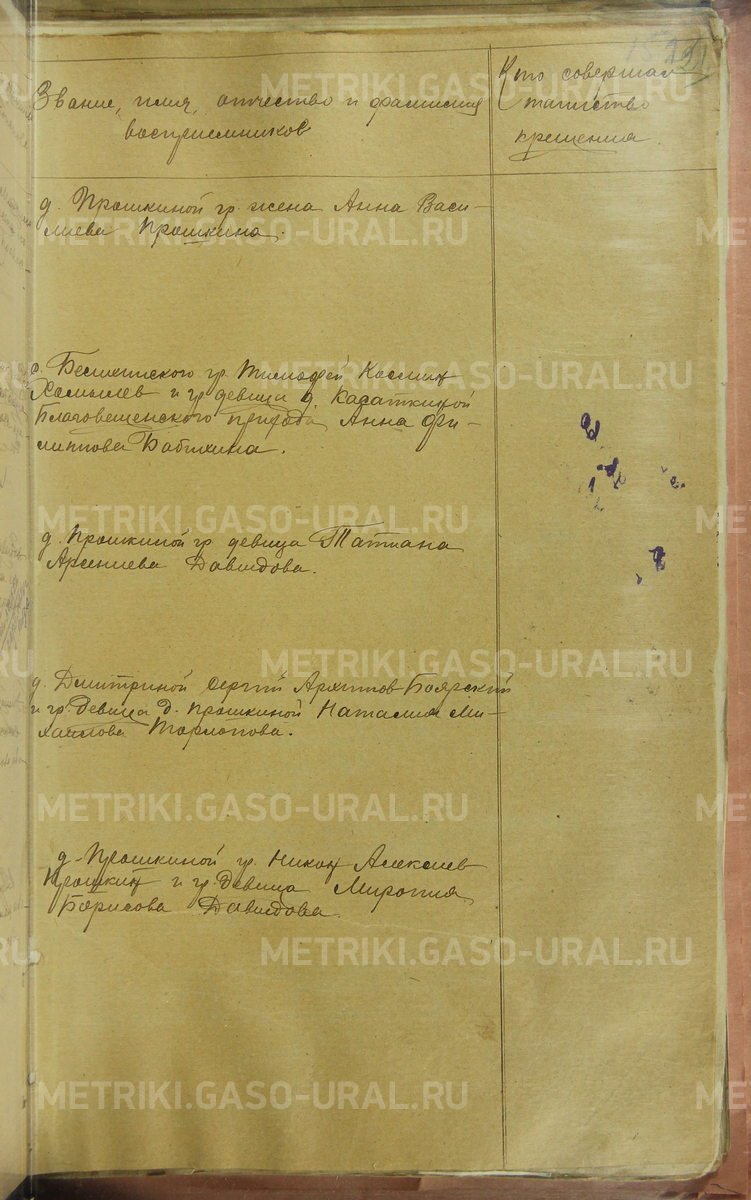 Звание, имя, отчество и фамилия
восприемников
Кто совершал
таинство
крещения
д. Прошкиной гр. жена Анна Васи-
лиева Прошкина.
гр. Тимофей Космин
и гр. девица д. Касаткиной
Благовещенского прихода Анна Фи-
липпова Бабихина.
д. Прошкиной гр. девица Татиана
Арсениева Давыдова.
д. Дмитриной Сергий Архипов Боярский
и гр. девица д. Прошкиной Наталия Ми-
хайлова
д. Прошкиной гр. Никон Алексиев
Прошкин и гр. девица Миропия
Борисова Давыдова.
METRIKI.GASO-URAL.RU